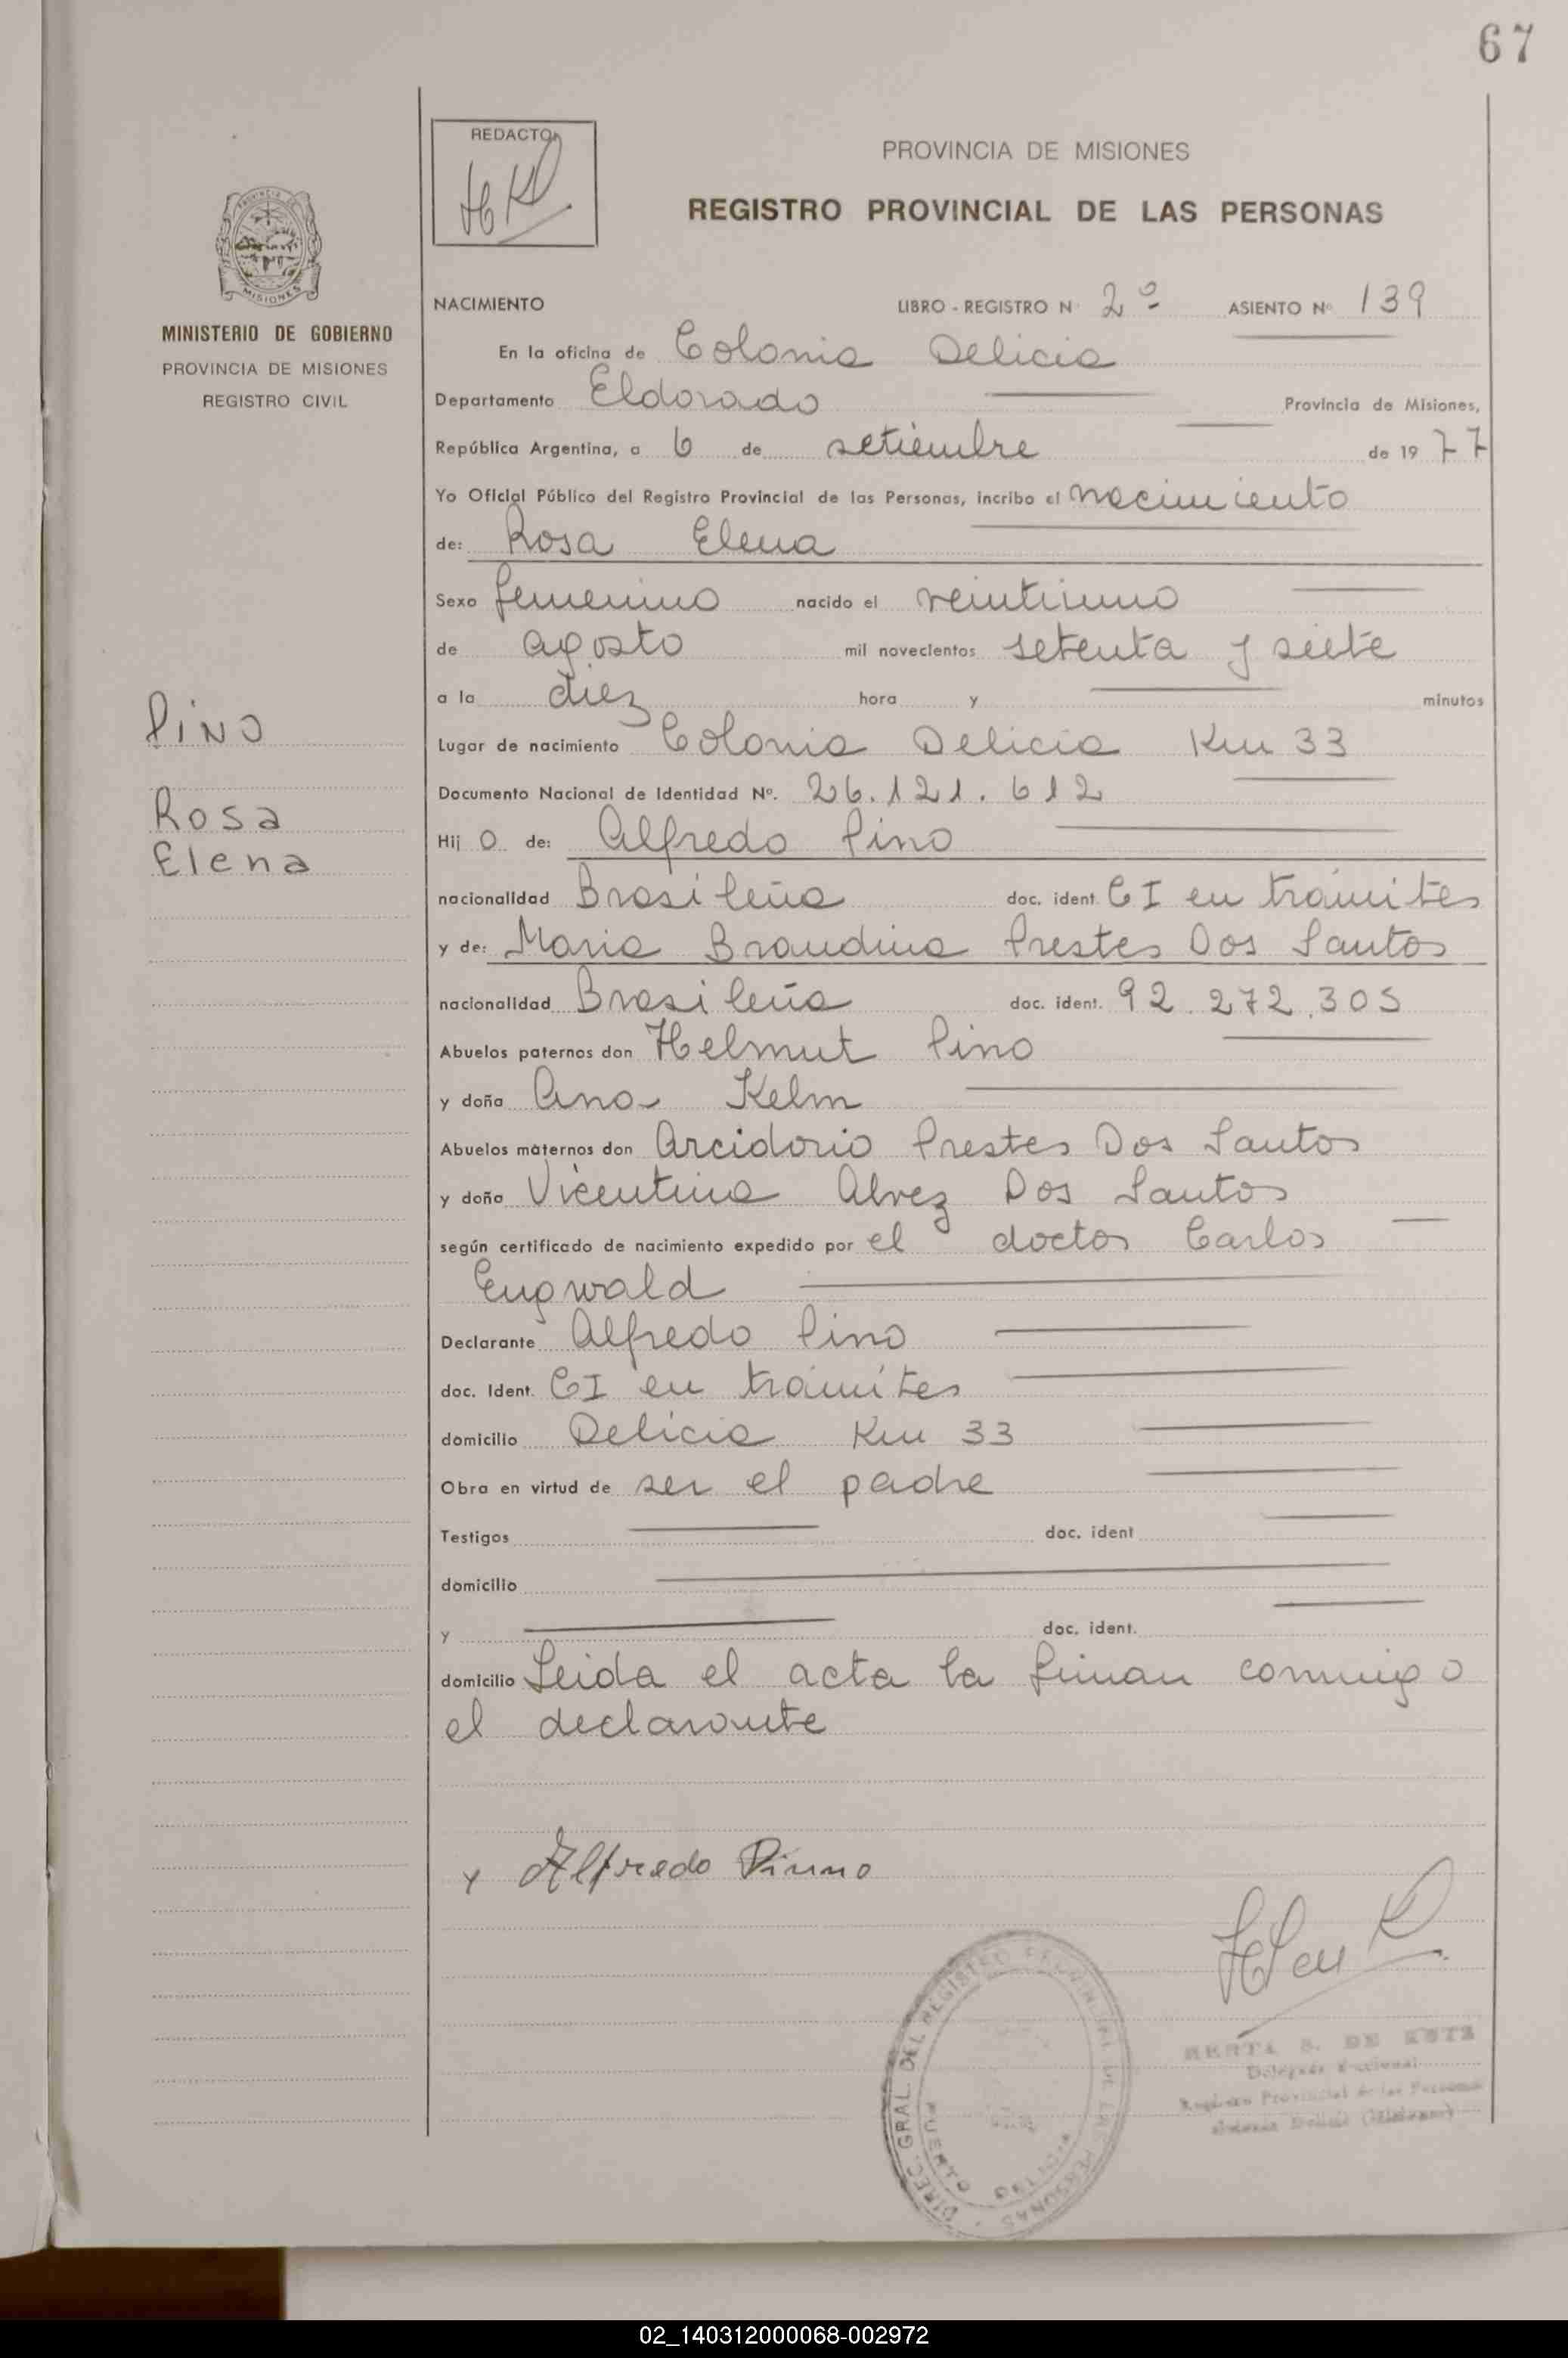 67
REDACTO
PROVINCIA DE MISIONES
REGISTRO PROVINCIAL DE LAS PERSONAS
MISIONES
MINISTERIO DE GOBIERNO
PROVINCIA DE MISIONES
REGISTRO CIVIL
NACIMIENTO LIBRO - REGISTRO N 2º ASIENTO Nº 139
En la oficina de Colonia Delicia
Departamento Eldorado Provincia de Misiones,
República Argentina, a 6 de setiembre de 1977
Yo Oficial Público del Registro Provincial de las Personas, incribo el nacimiento
de: Rosa Elena
Sexo femenino nacido el veintiuno
de agosto mil novecientos setenta y siete
a la diez hora y minutos
Lugar de nacimiento Colonia Delicia Km 33
Documento Nacional de Identidad Nº. 26.121.612
Hij o de: Alfredo Pino
nacionalidad Brasileña doc. ident. CI en trámites
y de: Maria Brandina Prestes Dos Santos
nacionalidad Brasileña doc. ident. 92.272.305
Abuelos paternos don Helmut Pino
y doña Ana Kelm
Abuelos maternos don Arcidorio Prestes Dos Santos
y doña Vicentina Alvez Dos Santos
según certificado de nacimiento expedido por el doctor Carlos
Engwald
Declarante Alfredo Pino
doc. Ident. CI en trámites
domicilio Delicia Km 33
Obra en virtud de ser el padre
Testigos doc. ident
domicilio
y doc. ident.
domicilio Leida el acta la firman conmigo
el declarante
Pino
Rosa
Elena
y Alfredo Pinno
DIREC. GRAL. DEL REGISTRO PROVINCIAL DE LAS PERSONAS
PUERTO DELICIA
HERTA S. DE KUTZ
Registro Provincial de las Personas
02_140312000068-002972